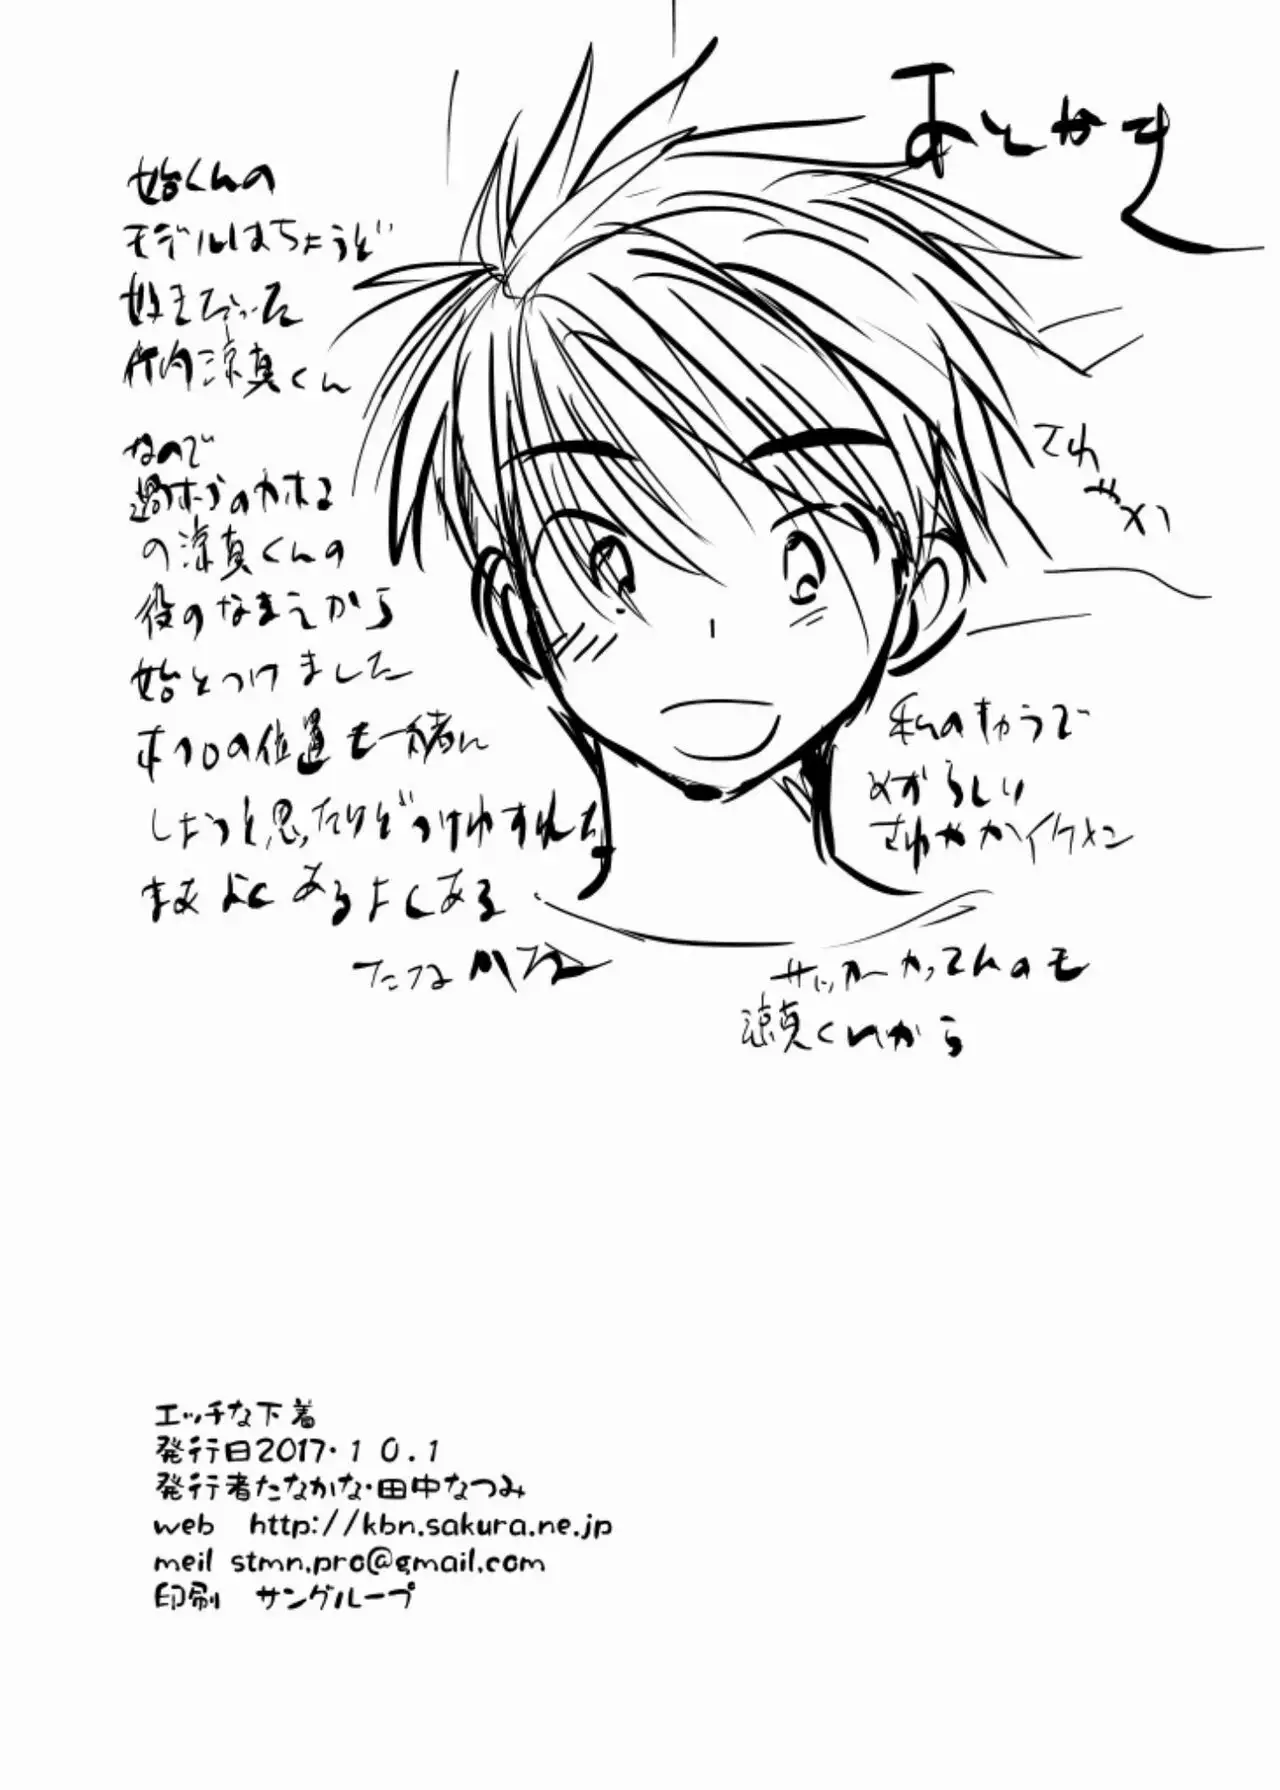 あとがき
始くんの
モデルはちょうど
好きだった
竹内涼真くん
なので
過保護のカホコ
の涼真くんの
役のなまえから
始とつけました
ホクロの位置も一緒に
しようと思ったけどつけわすれた
まあよくあるよくある
たなかな
さわ
やか
私のきゅうで
めずらしい
さわやかイケメン
サッカーやってんのも
涼真くんから
エッチな下着
発行日2017・10.1
発行者たなかな・田中なつみ
web http://kbn.sakura.ne.jp
meil stmn.pro@gmail.com
印刷 サングループ